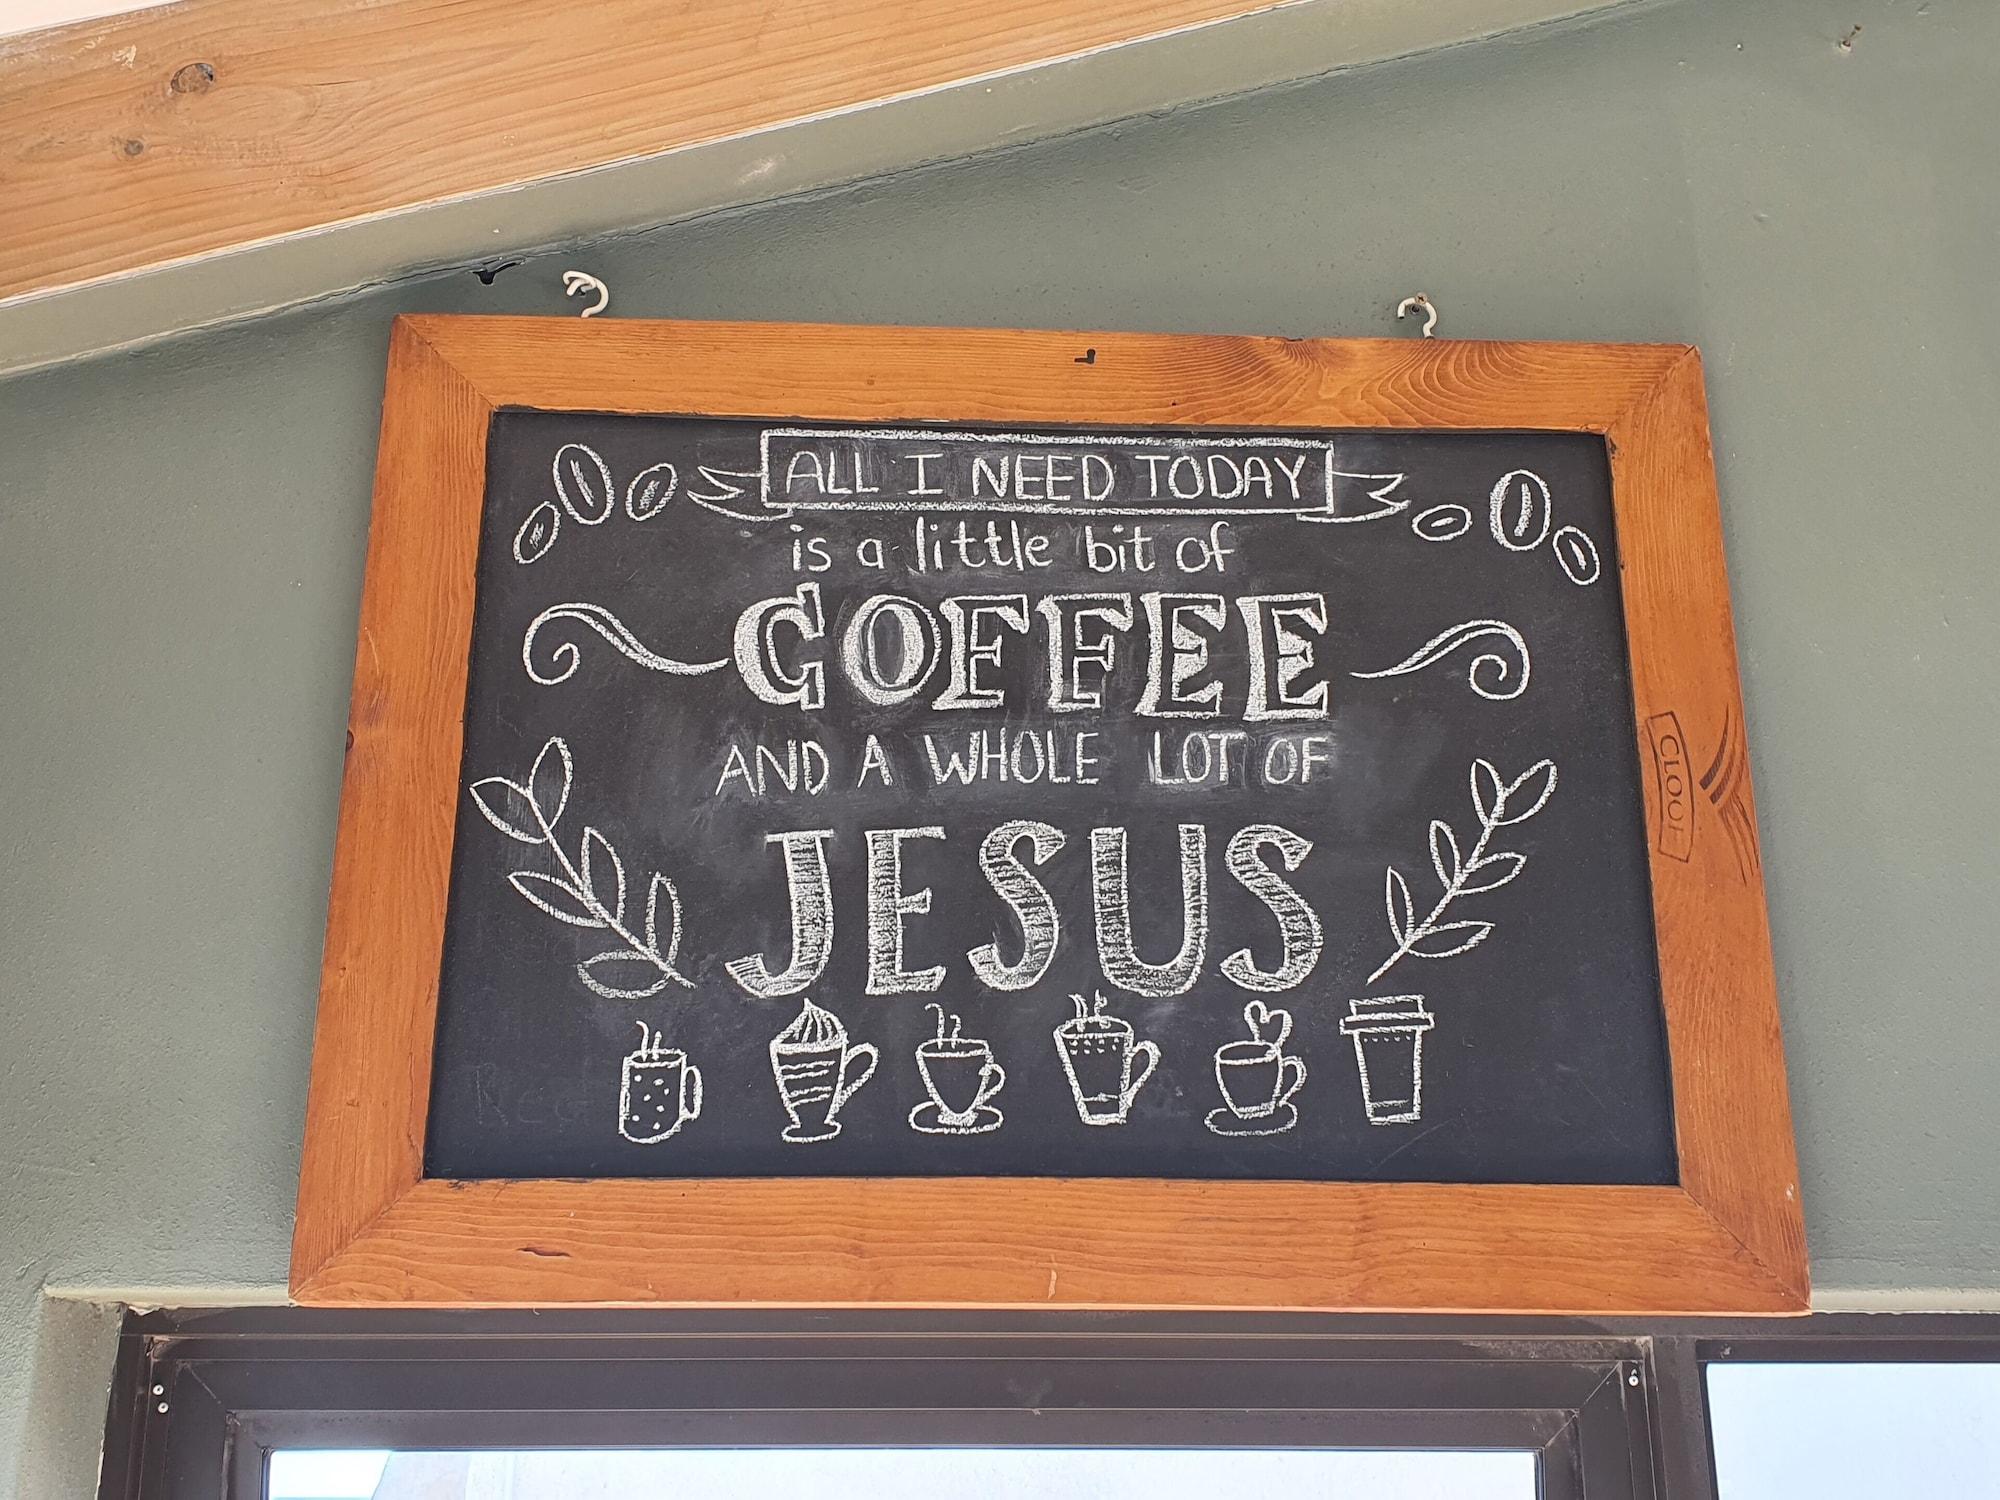 ALL I NEED TODAY
is a little bit of
COFFEE
AND A WHOLE LOT OF
JESUS
CLOOF